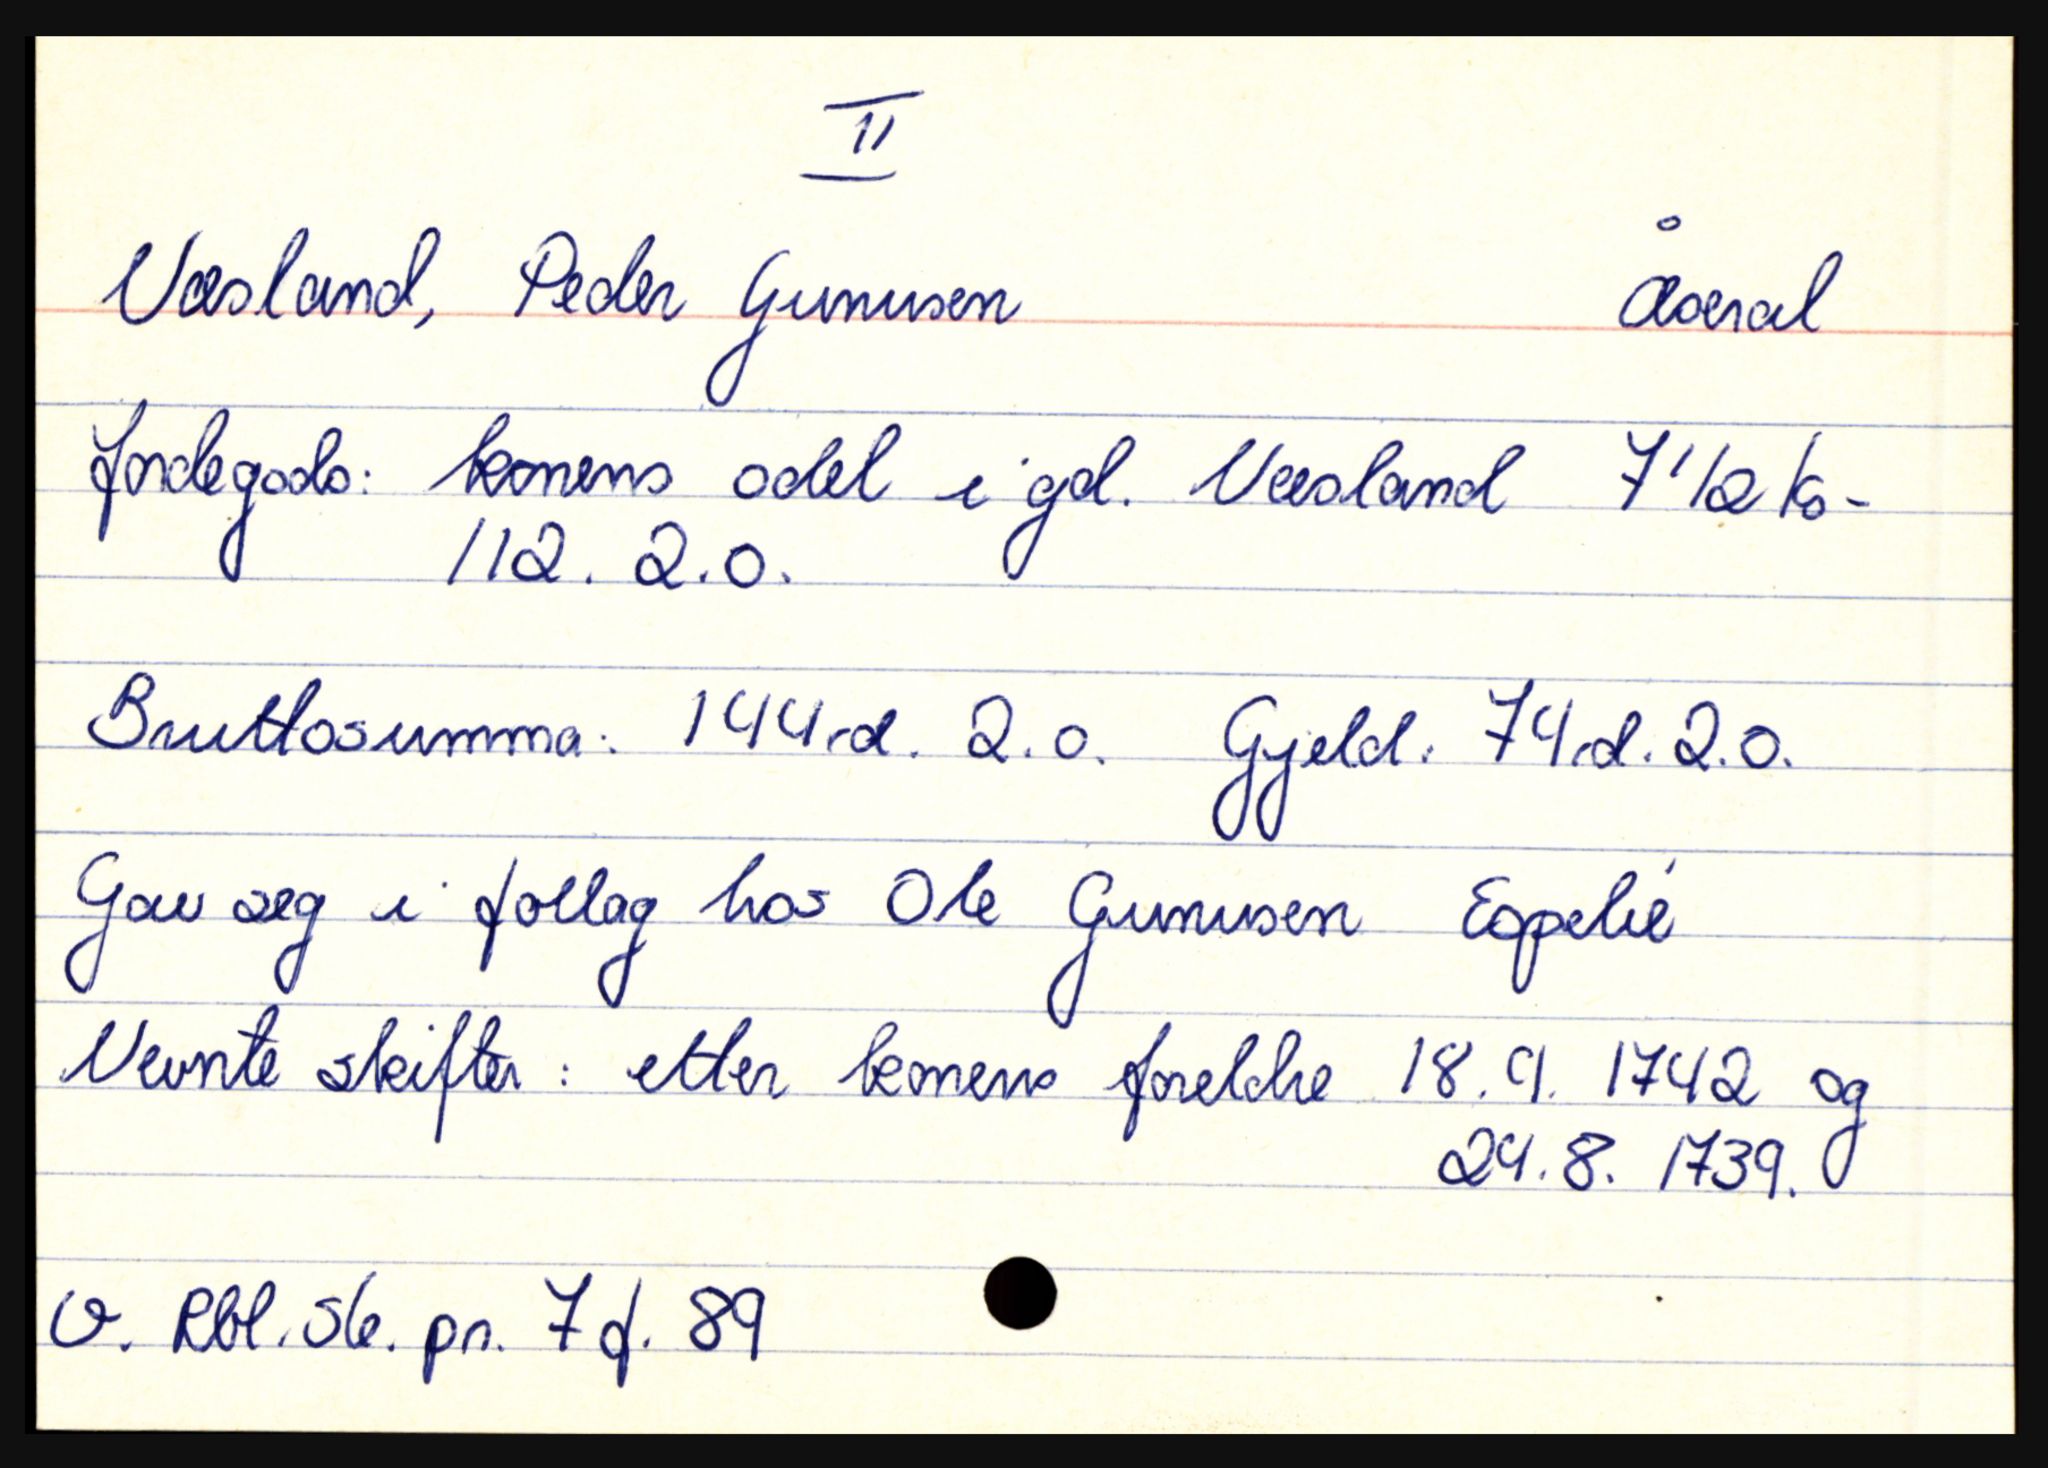 II
Væsland, Peder Gunusen Åseral
Jordegods: konens odel i gd. Væsland 7 1/2 ks -
112. 2.0.
Bruttosumma: 144 rd. 2.0. Gjeld: 74 rd. 2.0.
Gav seg i follag hos Ole Gunusen Espelie
Nevnte skifter: etter konens foreldre 18.9. 1742 og
24.8. 1739.
V. Rbl. Sk. pr. 7 f. 89